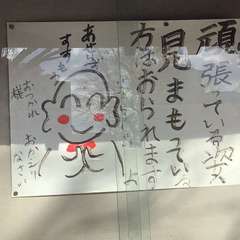 頑張っている姿
見まもている
方はおられますよ
あせらず
すすもう
おつかれ様
おだいじ
なさい